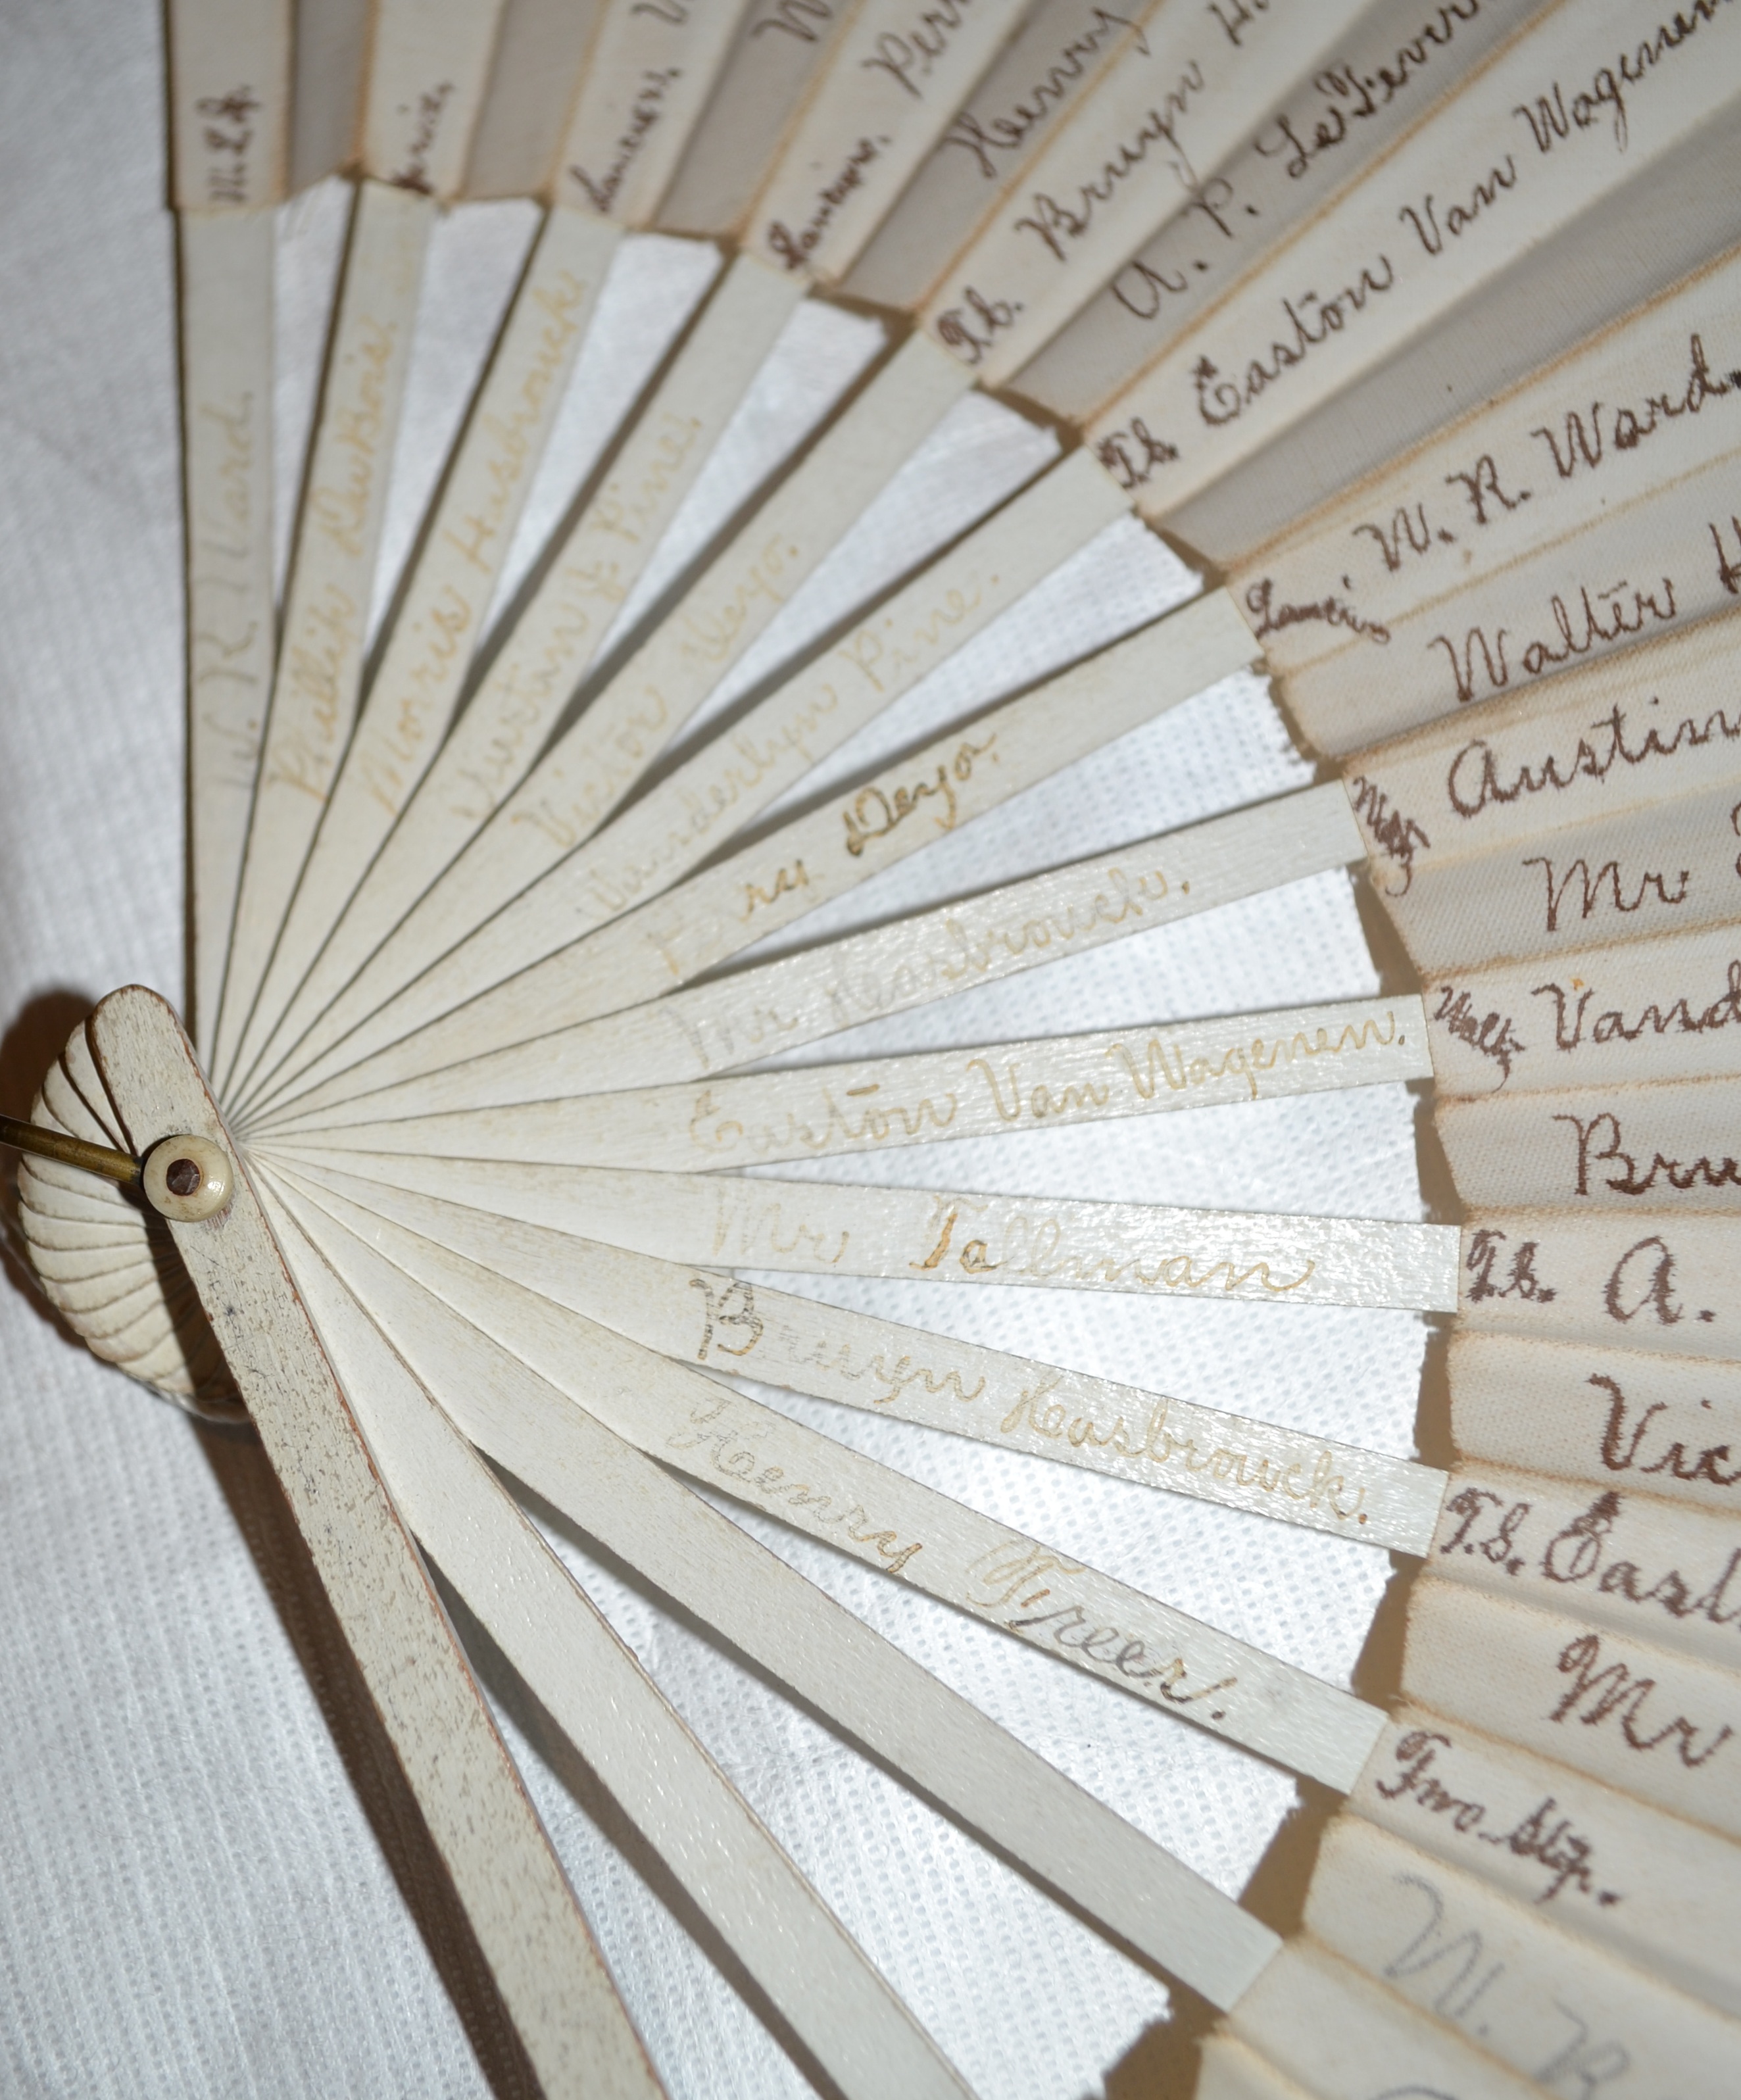 W. R. Ward.
Phillip DuBois.
Morris Hasbrouck
Austin J. Pine.
Victor Deyo.
Vanderlyn Pine.
ry Deyo.
Mr Hasbrouck.
Easton Van Wagenen.
Mr Tallman
Bruyn Hasbrouck.
Henry Freer.
Henry
T.S. Bruyn H.
A. P. LeFevre
T.S. Easton Van Wagenen
W. R. Ward.
Walter H
Waltz Austin
Mr
Waltz Vand
Bru
T.S. A.
Vic
T.S. East
Mr
Two Step.
W. R